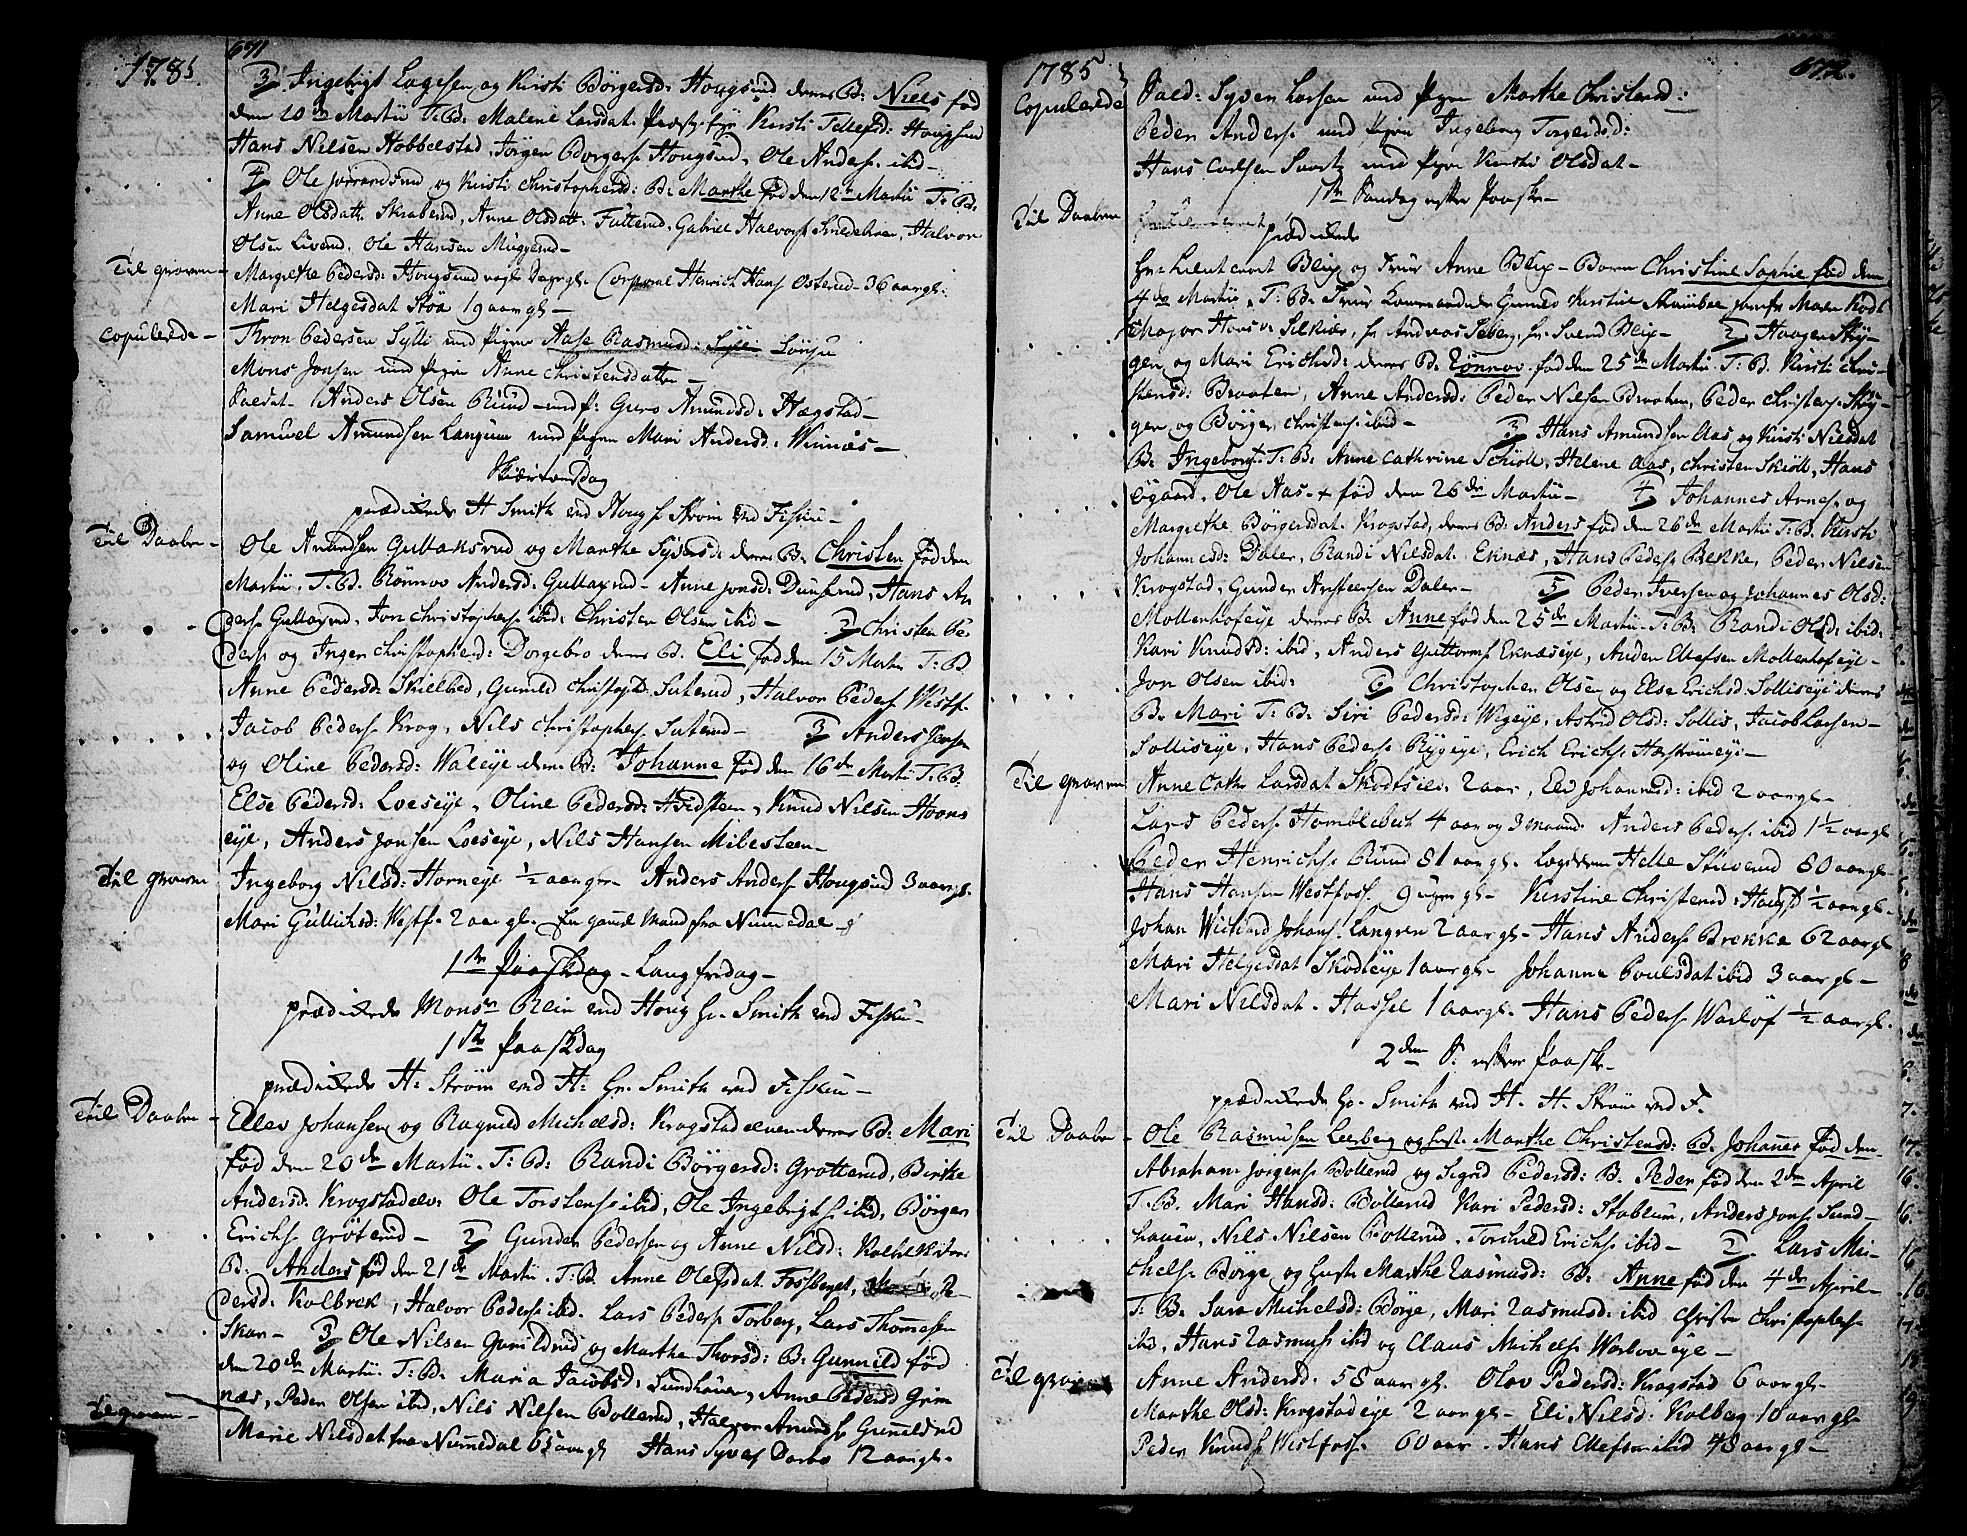 1785. 671
3 Ingebrigt Lagesen og Kirsti Börgersd: Hougsund deres B: Niels fød
den 10de Martii T. B. Malene Larsdat. Kirsti Tollefsd: Hougsund
Hans Nilsen Hobbelstad, Jörgen Börgers. Hougsund, Ole Anders. ibid-
4 Ole og Kirsti Christophersd: B: Marthe fød den 12te Martii T: B:
Anne Olsdatt. Skaberud, Anne Olsdatt. Gabriel Halvors. Halvor
Olsen Liverud, Ole Hansen Muggerud-
Til graven- Margrethe Pedersd: Hougsund Corporal Henrich Hans. Osterud- 36 aar gl:
Mari Helgesdat Stöa 19 aar gl-
Copulerede- Thron Pedersen Sylli med Pigen Aase Rasmusd:
Mons Jonsen med Pigen Anne Christensdatter-
Soldat- Anders Olsen Ruud- med P: Guro Amundsd: Hægstad-
Samuel Amundsen Langum med Pigen Mari Andersd: Winnæs-
Skiærtorsdag
prædikede H Smith ved Houg H. Ström ved Fiskum-
Til Daaben- Ole Amundsen Gullaksrud og Marthe Syversd: deres B: Christen fød den
Martii, T. B. Rönnov Andersd: Gullagrud- Anne Jonsd: Dunserud, Hans An
ders. Gullagrud, Jon Christophers. ibid, Christen Olsen ibid- 2 Christen Pe
ders. og Inger Christophersd: Dorgebro deres B. Eli fød den 15 Martii T: B.
Anne Pedersd: Gunild Christophd: Suterud, Halvor Peders. Westf.
Jacob Peders. Krog, Nils Christophers. Suterud- 3 Anders Jensen
og Oline Pedersd: Waleye deres B: Johanne fød den 16de Martii T. B.
Else Pedersd: Loeseye, Oline Pedersd: Hvidsteen, Knud Nilsen Hovns
eye, Anders Jonsen Loeseye, Nils Hansen Milesteen-
Til graven Ingeborg Nilsd: Horneye ½ aar gl- Anders Anders. Hougsund 3 aar gl.
Mari Gullichsd: Westf. 2 aar gl.- En gaml Mand fra Nummedal-
1te Paaskdag- Langfredag-
prædikede Monsr Rein ved Houg Hr. Smith ved Fiskum-
1ste Paaskdag
prædikede H. Ström ved H: Hr. Smith ved Fiskum-
Til Daaben- Ellev Johansen og Ragnild Michelsd: Krogstadelven deres B: Mari
fød den 20de Martii. T: B: Randi Börgersd: Grötterud, Birthe
Andersd. Krogstadelv. Ole Torstens. ibid, Ole Ingebrigts. ibid, Börger
Erichs. Gröterud- 2 Gunder Pedersen og Anne Nilsd:
B. Anders fød den 21de Martii. T: B. Anne Olesdat Fossberget, Pe-
dersd: Kolbrek, Halvor Peders. ibid. Lars Peders. Torberg, Lars Thomesen
Skar- 3 Ole Nilsen Gunildrud og Marthe Thorsd: B: Gunnild fød
den 20de Martii. T: B. Maria Jacobsd: Sundhauen, Anne Pedersd Grim
næs, Peder Olsen ibid, Nils Nilsen Bollerud, Halvor Amunds. Gunildrud
Til graven- Marie Nilsdat fra Nummedal 65 aar gl Hans Syvers. Dorbo 12 aar gl.
1785 672.
Copulerede Sold: Syven Larsen med Pigen Marthe Christensd:
Peder Anders. med Pigen Ingeborg Torgersd:
Hans Carlsen Svart med Pigen Kirsti Olsdat-
1ste Søndag efter Paaske-
Til Daaben prædikede
Hr. Lieutenant Blix og Frue Anne Blix- Barn Christine Sophie fød den
4de Martii, T: B: Frue
Major Hans v: Silkier, Hr. Andreas Hr. Svend Blix- 2 Haagen Skÿ-
gen og Mari Erichsd: deres B. Rönnov fød den 25de Martii. T: B. Kirsti Chri-
stensd: Braaten, Anne Andersd: Peder Nilsen Braaten, Peder Christens. Skÿ-
gen og Börger Christens. ibid- 3 Hans Amundsen Aas og Kirsti Nilsdat
B: Ingeborg T: B: Anne Cathrine Schiöll, Helene Aas, Christen Skiöll, Hans
Ögaard, Ole Aas- + fød den 26de Martii- 4 Johannes Arnes. og
Margrethe Börgersdat. Krogstad, deres B: Anders fød den 26de Martii T: B. Kirsti
Johannesd: Daler, Randi Nilsdat. Eknæs, Hans Peders. Bekke, Peder Nilsen
Krogstad, Gunder Ansteensen Daler- 5 Peder Iversen og Johannes Olsd:
Mollenhofeye deres B: Anne fød den 25de Martii. T: B: Randi Olsd: ibid:
Kari Knudsd: ibid, Anders Guttorms. Eknæseye, Anden Ellefsen Mollenhofeye-
Jon Olsen ibid: 6 Christopher Olsen og Else Erichsd. Solliseye deres
B: Mari T: B: Siri Pedersd: Wegeye, Astrid Olsd: Sollis, Jacob Larsen-
Solliseye, Hans Peders. Rygeye, Erich Erichs.
Til graven Anne Cath: Larsdat Skodtselv. 2 aar, Eli Johannesd: ibid 2 aar gl-
Lars Peders. Homblebech 4 aar og 3 Maand Anders Peders. ibid 1½ aar gl
Peder Henrichs. Ruud 81 aar gl. Helle 60 aar gl.
Hans Hansen Westfoss. 9 uger gl- Kirstine Christensd: Haugs. ½ aar gl-
Johan Wichard Johans. Langren 2 aar gl- Hans Anders. Brekke 62 aar gl
Mari Helgesdat Skodteye 1 aar gl- Johanne Poulsdat ibid 3 aar gl-
Mari Nilsdat. Hassel 1 aar gl. Hans Peders. Warlöf ½ aar gl.
2den S: efter Paaske-
prædikede Hr. Smith ved H. H. Ström ved F.
Til Daaben- Ole Rasmusen Leerberg og Hust. Marthe Christensd: B. Johannes fød den
Abraham Jorgens. Bollerud og Sigrid Pedersd: B. Peder fød den 2den April
T. B. Mari Hansd: Bollerud Kari Pedersd: Stablum, Anders Jons. Sund-
hauen, Nils Nilsen Bollerud. Torchild Erichs. ibid- 2. Lars Mi-
chels. Börge og Hust. Marthe Rasmusd: B: Anne fød den 4de April-
T: B: Sara Michelsd: Börge, Mari Rasmusd: ibid Christen Christophers.
ibid, Hans Rasmuss. ibid og Claus Michels. Warlooeye-
Til graven Anne Andersd: 58 aar gl. Olav Pedersd: Krogstad 6 aar gl-
Marthe Olsd: Krogstadeye 2 aar gl- Eli Nilsd: Kolberg 10 aar gl-
Peder Knuds. Westfoss. 60 aar. Hans Ellefsen ibid 48 aar gl-